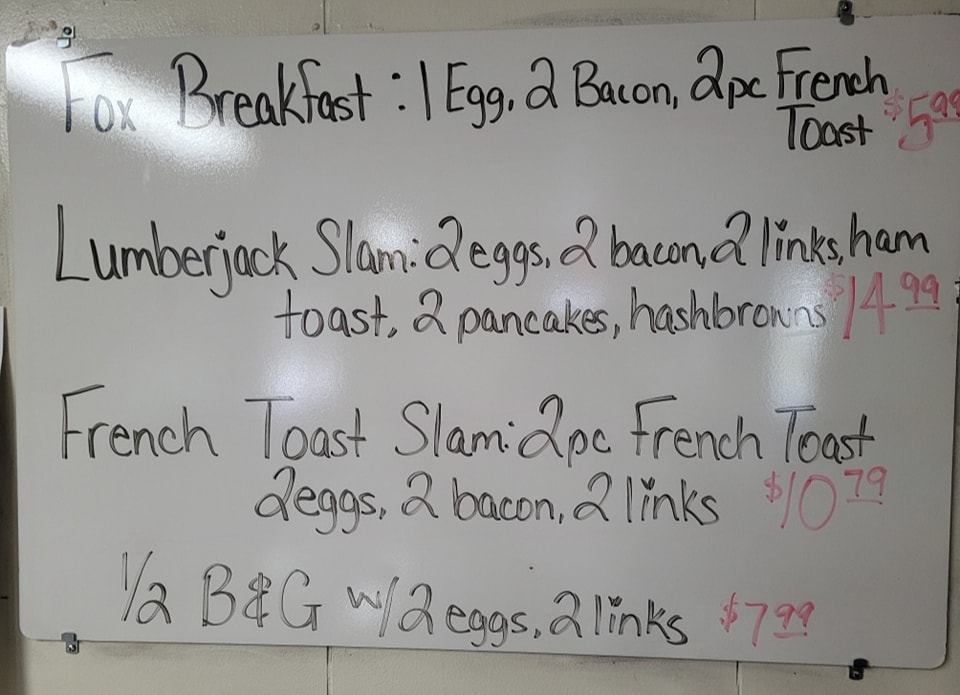 Fox Breakfast: 1 Egg, 2 Bacon, 2pc French
Toast $5.99
Lumberjack Slam: 2 eggs, 2 bacon, 2 links, ham
toast, 2 pancakes, hashbrowns $14.99
French Toast Slam: 2pc French Toast
2 eggs, 2 bacon, 2 links $10.79
1/2 B&G w/2 eggs, 2 links $7.99